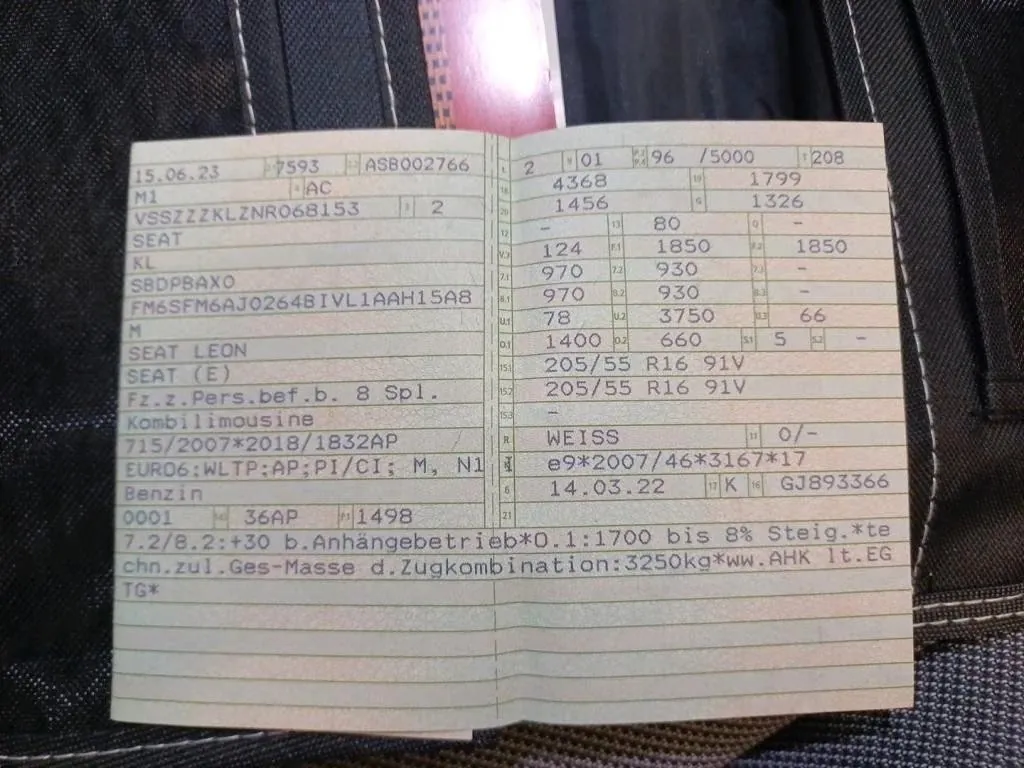 15.06.23 7593 ASB002766
M1 AC
VSSZZZKLZNR068153 2
SEAT
KL
SBDPBAX0
FM6SFM6AJ0264BIVL1AAH15A8
M
SEAT LEON
SEAT (E)
Fz.z.Pers.bef.b. 8 Spl.
Kombilimousine
715/2007*2018/1832AP
EURO6;WLTP;AP;PI/CI; M, N1
Benzin
0001 36AP P.1 1498
L 2 9 01 P.2 P.4 96 /5000 T 208
18 4368 19 1799
20 1456 G 1326
12 - 13 80 Q -
V.7 124 F.1 1850 F.2 1850
7.1 970 7.2 930 7.3 -
8.1 970 8.2 930 8.3 -
U.1 78 U.2 3750 U.3 66
O.1 1400 O.2 660 S.1 5 S.2 -
15.1 205/55 R16 91V
15.2 205/55 R16 91V
15.3 -
R WEISS 11 0/-
K e9*2007/46*3167*17
6 14.03.22 17 K 16 GJ893366
21
7.2/8.2:+30 b.Anhängebetrieb*O.1:1700 bis 8% Steig.*te
chn.zul.Ges-Masse d.Zugkombination:3250kg*ww.AHK lt.EG
TG*